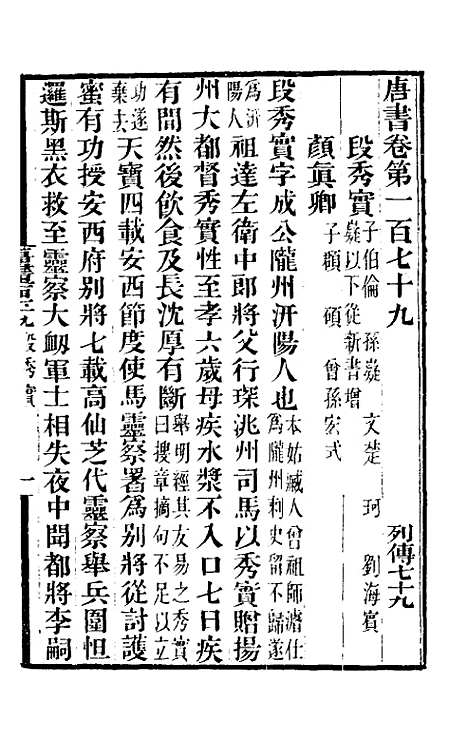 唐書卷第一百七十九　列傳七十九
段秀實子伯倫　孫嶷　文楚　珂　劉海賓
嶷以下從新書增
顏眞卿子頵　碩　曾孫宏式
段秀實字成公隴州汧陽人也本姑臧人曾祖師濬仕
爲隴州刺史留不歸遂
爲汧
陽人祖達左衛中郎將父行琛洮州司馬以秀實贈揚
州大都督秀實性至孝六歲母疾水漿不入口七日疾
有間然後飲食及長沈厚有斷舉明經其友易之秀實
曰搜章摘句不足以立
功遂
棄去天寶四載安西節度使馬靈察署爲別將從討護
蜜有功授安西府別將七載高仙芝代靈察舉兵圍怛
邏斯黑衣救至靈察大衂軍士相失夜中聞都將李嗣
段秀實
一